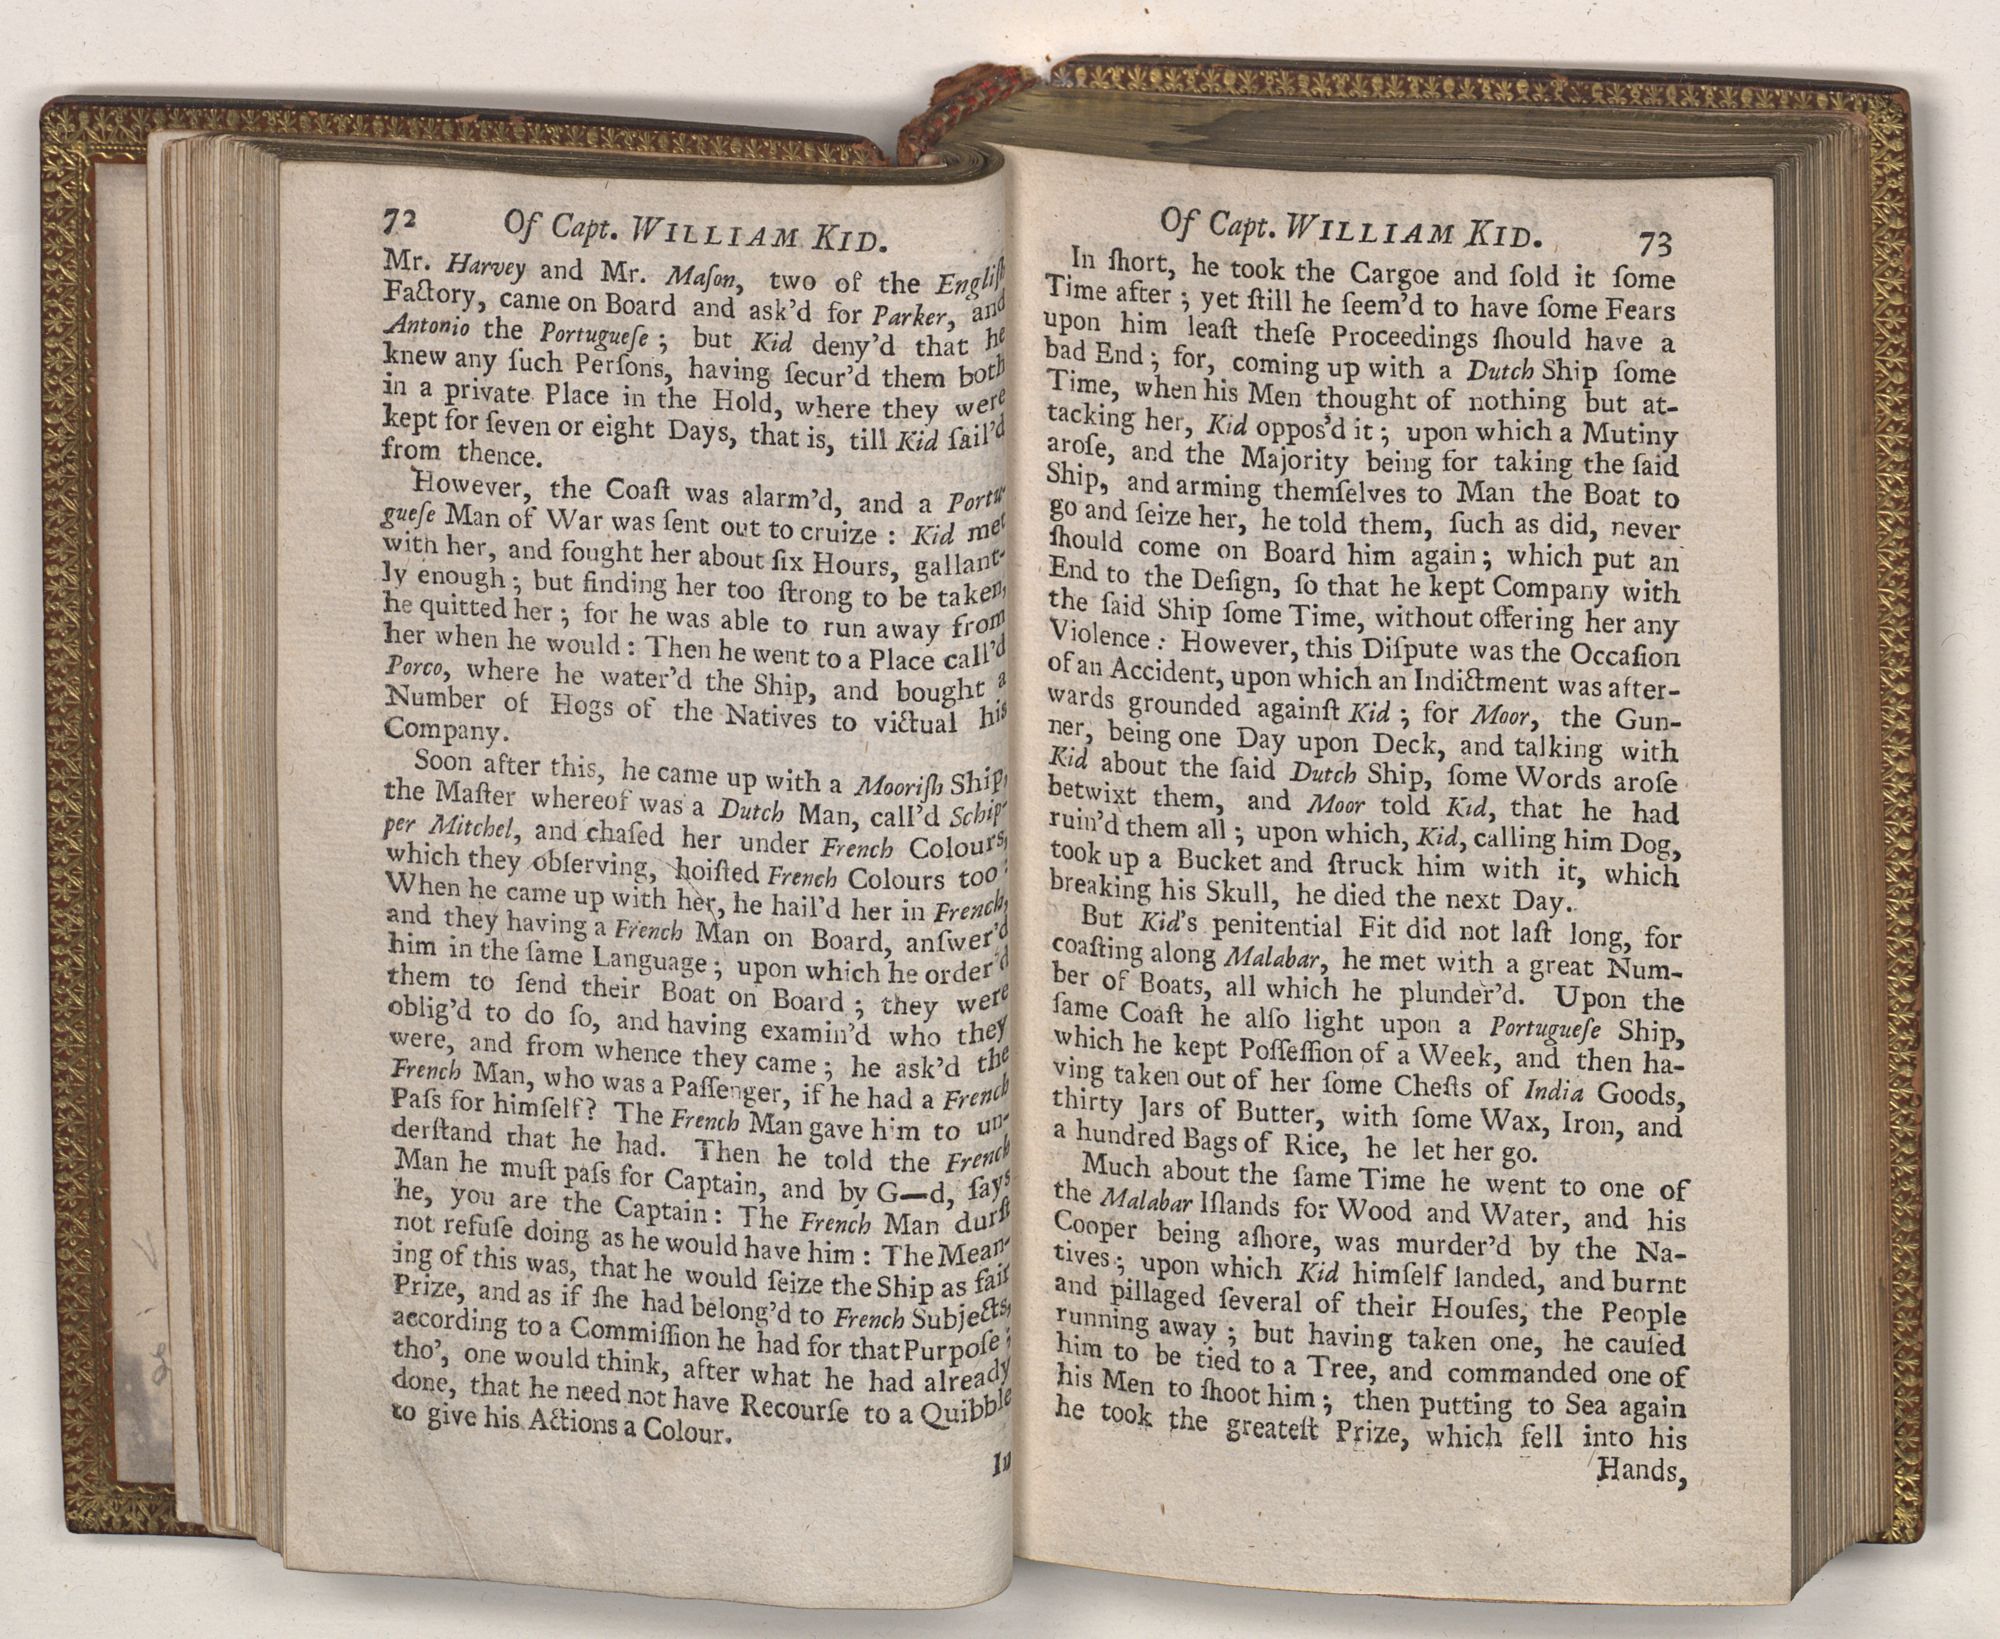 72 Of Capt. WILLIAM KID.
Mr. Harvey and Mr. Maſon, two of the Engliſh
Factory, came on Board and ask'd for Parker, and
Antonio the Portugueſe; but Kid deny'd that he
knew any ſuch Perſons, having ſecur'd them both
in a private Place in the Hold, where they were
kept for ſeven or eight Days, that is, till Kid ſail'd
from thence.
However, the Coaſt was alarm'd, and a Portu-
gueſe Man of War was ſent out to cruize: Kid met
with her, and fought her about ſix Hours, gallant-
ly enough; but finding her too ſtrong to be taken,
he quitted her; for he was able to run away from
her when he would: Then he went to a Place call'd
Porco, where he water'd the Ship, and bought a
Number of Hogs of the Natives to victual his
Company.
Soon after this, he came up with a Mooriſh Ship,
the Maſter whereof was a Dutch Man, call'd Schip-
per Mitchel, and chaſed her under French Colours,
which they obſerving, hoiſted French Colours too:
When he came up with her, he hail'd her in French,
and they having a French Man on Board, anſwer'd
him in the ſame Language; upon which he order'd
them to ſend their Boat on Board; they were
oblig'd to do ſo, and having examin'd who they
were, and from whence they came; he ask'd the
French Man, who was a Paſſenger, if he had a French
Paſs for himſelf? The French Man gave him to un-
derſtand that he had. Then he told the French
Man he muſt paſs for Captain, and by G—d, ſays
he, you are the Captain: The French Man durſt
not refuſe doing as he would have him: The Mean-
ing of this was, that he would ſeize the Ship as fair
Prize, and as if ſhe had belong'd to French Subjects,
according to a Commiſſion he had for that Purpoſe;
tho', one would think, after what he had already
done, that he need not have Recourſe to a Quibble
to give his Actions a Colour.
In
Of Capt. WILLIAM KID. 73
In ſhort, he took the Cargoe and ſold it ſome
Time after; yet ſtill he ſeem'd to have ſome Fears
upon him leaſt theſe Proceedings ſhould have a
bad End; for, coming up with a Dutch Ship ſome
Time, when his Men thought of nothing but at-
tacking her, Kid oppos'd it; upon which a Mutiny
aroſe, and the Majority being for taking the ſaid
Ship, and arming themſelves to Man the Boat to
go and ſeize her, he told them, ſuch as did, never
ſhould come on Board him again; which put an
End to the Deſign, ſo that he kept Company with
the ſaid Ship ſome Time, without offering her any
Violence: However, this Diſpute was the Occaſion
of an Accident, upon which an Indictment was after-
wards grounded againſt Kid; for Moor, the Gun-
ner, being one Day upon Deck, and talking with
Kid about the ſaid Dutch Ship, ſome Words aroſe
betwixt them, and Moor told Kid, that he had
ruin'd them all; upon which, Kid, calling him Dog,
took up a Bucket and ſtruck him with it, which
breaking his Skull, he died the next Day.
But Kid's penitential Fit did not laſt long, for
coaſting along Malabar, he met with a great Num-
ber of Boats, all which he plunder'd. Upon the
ſame Coaſt he alſo light upon a Portugueſe Ship,
which he kept Poſſeſſion of a Week, and then ha-
ving taken out of her ſome Cheſts of India Goods,
thirty Jars of Butter, with ſome Wax, Iron, and
a hundred Bags of Rice, he let her go.
Much about the ſame Time he went to one of
the Malabar Iſlands for Wood and Water, and his
Cooper being aſhore, was murder'd by the Na-
tives; upon which Kid himſelf landed, and burnt
and pillaged ſeveral of their Houſes, the People
running away; but having taken one, he cauſed
him to be tied to a Tree, and commanded one of
his Men to ſhoot him; then putting to Sea again
he took the greateſt Prize, which fell into his
Hands,